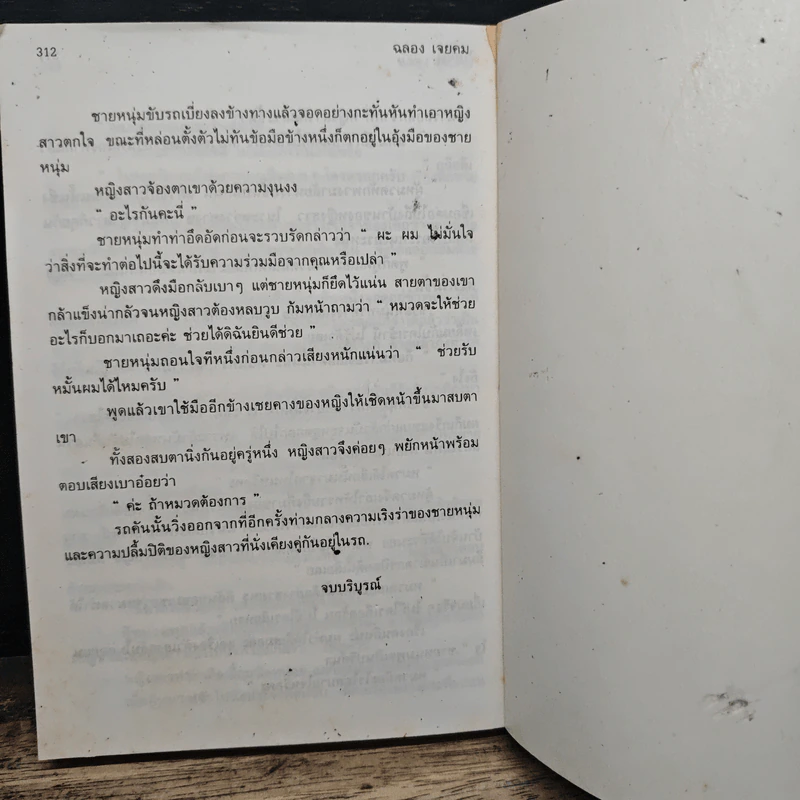 312
ฉลอง เจยคม
ชายหนุ่มขับรถเบี่ยงลงข้างทางแล้วจอดอย่างกะทั่นหันทำเอาหญิง
สาวตกใจ ขณะที่หล่อนตั้งตัวไม่ทันข้อมือข้างหนึ่งก็ตกอยู่ในอุ้งมือของชาย
หนุ่ม
หญิงสาวจ้องตาเขาด้วยความงุนงง
“ อะไรกันคะนี่ ”
ชายหนุ่มทำท่าอึดอัดก่อนจะรวบรัดกล่าวว่า “ ผะ ผม ไม่มั่นใจ
ว่าสิ่งที่จะทำต่อไปนี้จะได้รับความร่วมมือจากคุณหรือเปล่า ”
หญิงสาวดึงมือกลับเบาๆ แต่ชายหนุ่มก็ยึดไว้แน่น สายตาของเขา
กล้าแข็งน่ากลัวจนหญิงสาวต้องหลบวูบ ก้มหน้าถามว่า “ หมวดจะให้ช่วย
อะไรก็บอกมาเถอะค่ะ ช่วยได้ดิฉันยินดีช่วย ”
ชายหนุ่มถอนใจทีหนึ่งก่อนกล่าวเสียงหนักแน่นว่า “ ช่วยรับ
หมั้นผมได้ไหมครับ ”
พูดแล้วเขาใช้มืออีกข้างเชยคางของหญิงให้เชิดหน้าขึ้นมาสบตา
เขา
ทั้งสองสบตานิ่งกันอยู่ครู่หนึ่ง หญิงสาวจึงค่อยๆ พยักหน้าพร้อม
ตอบเสียงเบาอ๋อยว่า
“ ค่ะ ถ้าหมวดต้องการ ”
รถคันนั้นวิ่งออกจากที่อีกครั้งท่ามกลางความเริงร่าของชายหนุ่ม
และความปลื้มปิติของหญิงสาวที่นั่งเคียงคู่กันอยู่ในรถ.
จบบริบูรณ์